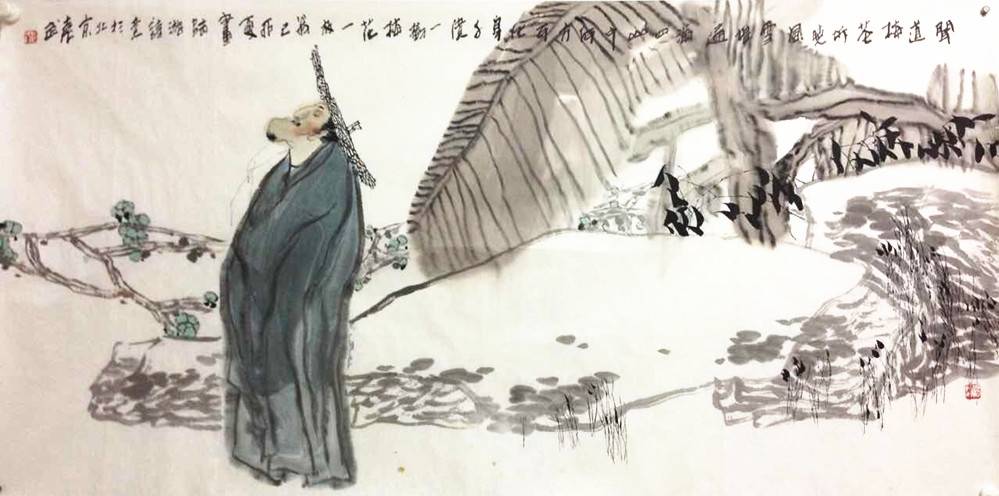 聞道梅花坼曉風雪堆遍滿四山中何方可化身千億一樹梅花一放翁己夏畫陸游詩意於北京